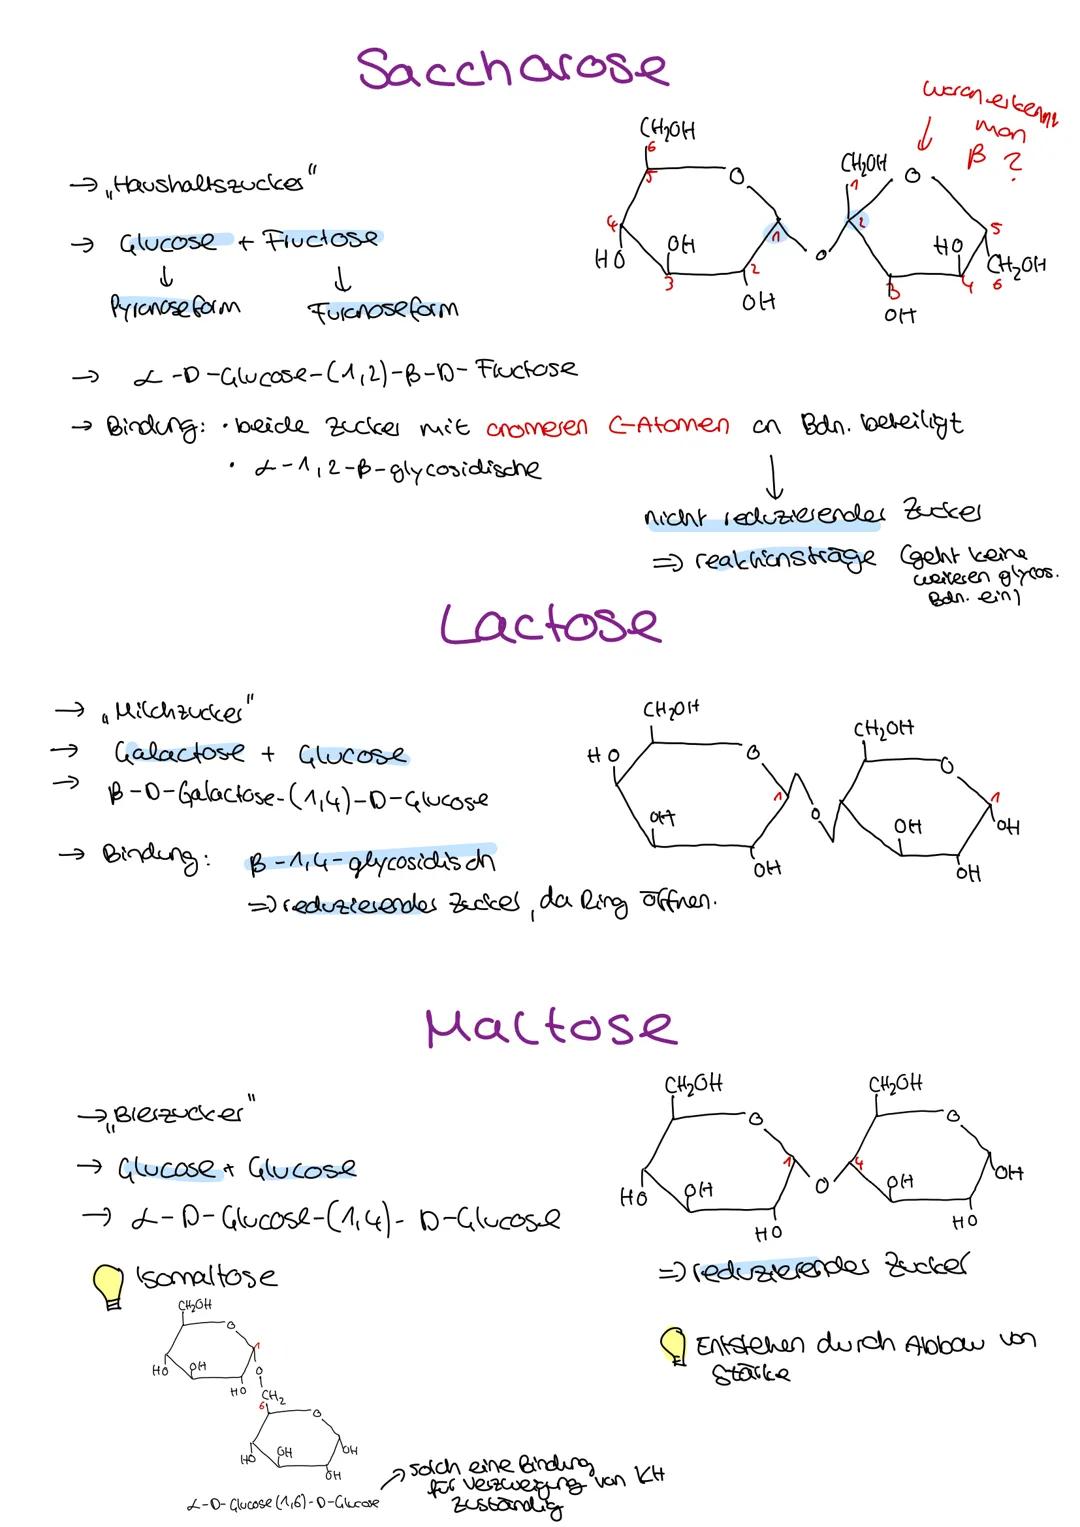 Saccharose
woran erkennt
man
β ?
→ „Haushaltszucker"
→ Glucose + Fructose
↓ ↓
Pyranoseform Furanoseform
CH₂OH
6
5
O
4
HO
OH
3
2
OH
1
O
CH₂OH
1
O
2
HO
5
CH₂OH
6
4
3
OH
→ α-D-Glucose-(1,2)-β-D-Fructose
→ Bindung: · beide Zucker mit anomeren C-Atomen an Bdn. beteiligt
· α-1,2-β-glycosidische
↓
nicht reduzierender Zucker
⇒ reaktionsträge (geht keine
weiteren glycos.
Bdn. ein)
Lactose
→ „Milchzucker"
→ Galactose + Glucose
→ β-D-Galactose-(1,4)-D-Glucose
→ Bindung: β-1,4-glycosidisch
⇒ reduzierender Zucker, da Ring öffnen.
CH₂OH
HO
O
OH
1
OH
O
CH₂OH
O
1
OH
OH
OH
Maltose
→ „Bierzucker"
→ Glucose + Glucose
→ α-D-Glucose-(1,4)- D-Glucose
CH₂OH
O
HO
OH
1
HO
O
CH₂OH
O
4
OH
OH
HO
⇒ reduzierender Zucker
Entstehen durch Abbau von
Stärke
Isomaltose
CH₂OH
O
1
HO
OH
HO
O
CH₂
6
O
HO
OH
OH
OH
α-D-Glucose(1,6)-D-Glucose
→ solch eine Bindung
für Verzweigung von KH
zuständig